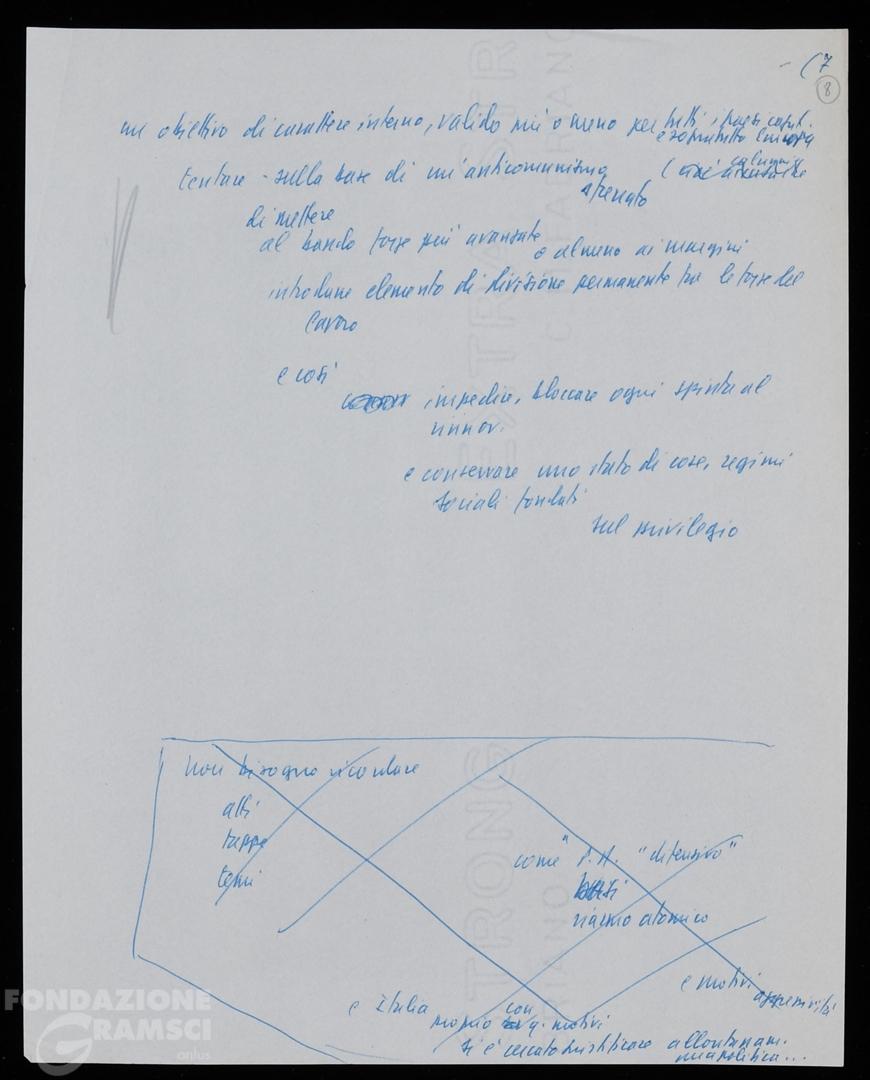 - (7
8
un obiettivo di carattere interno, valido più o meno per tutti i paesi capit.
e soprattutto Europa
tentare - sulla base di un'anticomunismo
sfrenato
calunnie
di mettere
al bando forze più avanzate
o almeno ai margini
introdurre elemento di divisione permanente tra le forze del
lavoro
e così
impedire, bloccare ogni spinta al
rinnov.
e conservare uno stato di cose, regimi
sociali fondati
sul privilegio
non bisogno ricordare
atti
tappe
temi
come "P.A. "difensivo"
basi
riarmo atomico
e motivi
aggressività
e Italia
proprio con q. motivi
si è cercato giustificare allontanam.
una politica...
FONDAZIONE
GRAMSCI
onlus
EXTRA STR
C M FABRIANO
STRONG
BRIANO